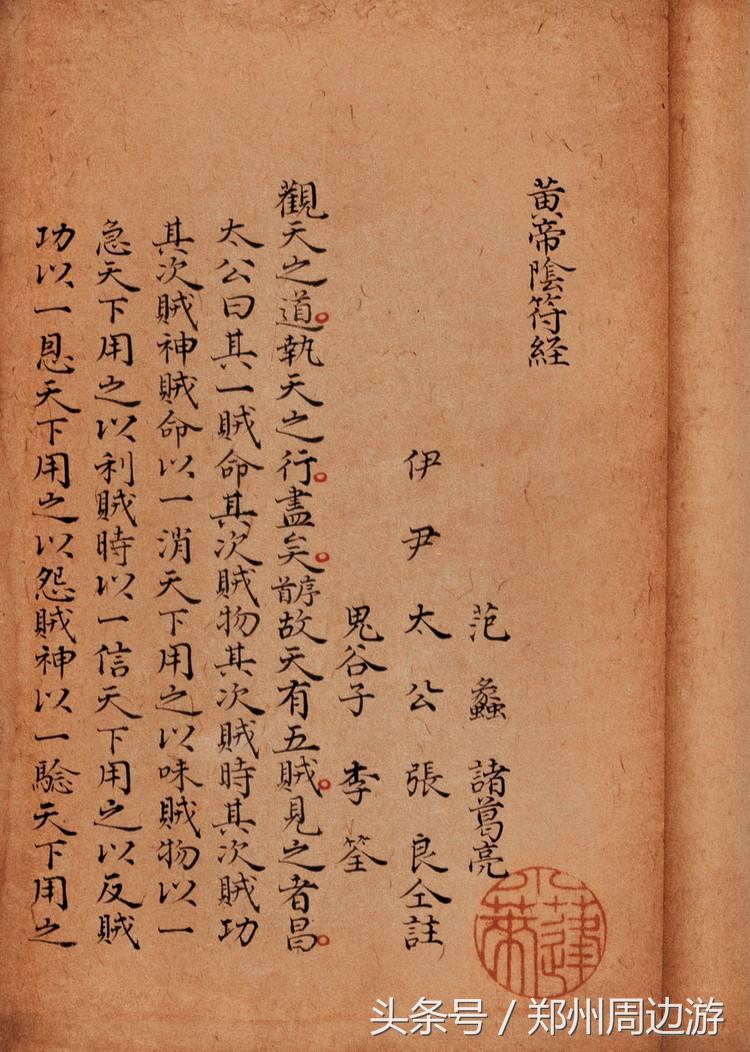 黄帝陰符経
范蠡 諸葛亮
伊尹 太公 張良 仝註
鬼谷子 李筌
觀天之道執天之行盡矣序首故天有五賊見之者昌
太公曰其一賊命其次賊物其次賊時其次賊功
其次賊神賊命以一消天下用之以味賊物以一
急天下用之以利賊時以一信天下用之以反賊
功以一恩天下用之以怨賊神以一驗天下用之
头条号 / 郑州周边游